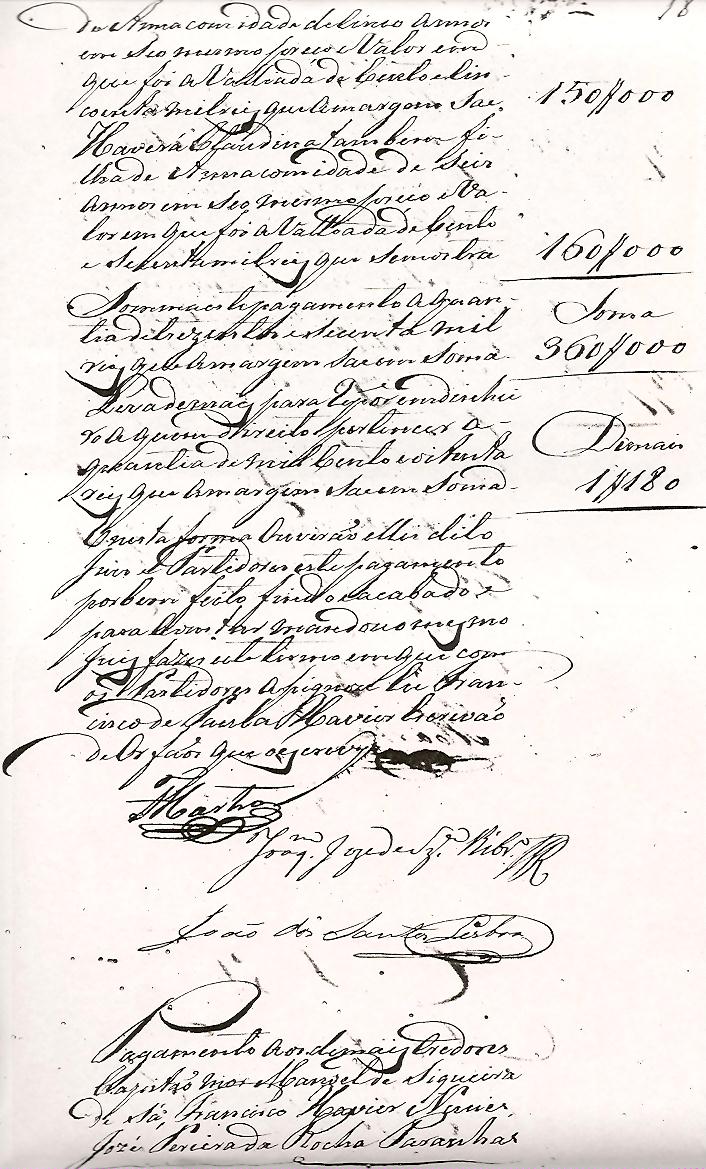 de Anna com idade de Cinco Annos
em Seo mesmo preco e Valor em
que foi aValliada de Cento e Cin-
coenta mil reis que amargem Sae
150$000
Haverá Claudina tambem fi-
lha de Anna com idade de Seis
Annos em Seo mesmo preco e Va-
lor em que foi aValliada de Cento
e Secenta mil reis que Se mostra
160$000
Somma este pagamento a quan-
Soma
tia de trezentos e Secenta mil
reis que amargem Sae em Soma
360$000
Leva demais para repór em dinhei
ro a quem direito pertencer a-
Demais
quantia de mil Cento e oitenta
reis que amargem Sae em Soma
1$180
E nesta forma ouverão elles dito
Juis e Partidores este pagamento
por bem feito findo e acabado e
para Constar mandou o mesmo
Juis fazer este termo em que com
os Partidores asignou Eu Fran-
cisco de Paula Xavier Escrivão
de Orfãos que o escrevy
Joaq.m Joze de Sz.a Ribr.o
João dos Santos Lisboa
Pagamento aos demais Credores
Capitão mor Manoel de Siqueira
de Sá, Francisco Xavier Nunes,
Jozé Pereira da Rocha Paranhas